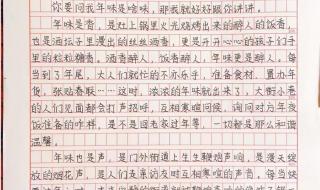 你要问我年味是啥味，那我就好好跟你讲讲。
年味是香，是灶上锅里火光烧烤出来的醉人的饭香，
也是酒坛子里漫出的丝丝酒香，更是开开心心的孩子们手
里的粒粒糖香。酒香醉人，饭香醉人，年味更醉人。每
当到了年尾，大人们就忙的不亦乐乎，准备食材，置办年
货，张贴春联……这时，浓浓的年味就出来了，大街小巷
的人们见面都会打声招呼，互相寒暄问候，询问对方年夜
饭准备的咋样，是不是回老家过年等，一切都是那么和谐
温馨。
年味也是声，是门外街道上生生鞭炮声响，是漫天绽
放的烟花声，是人们走亲访友时互相寒喧的声音。每当快